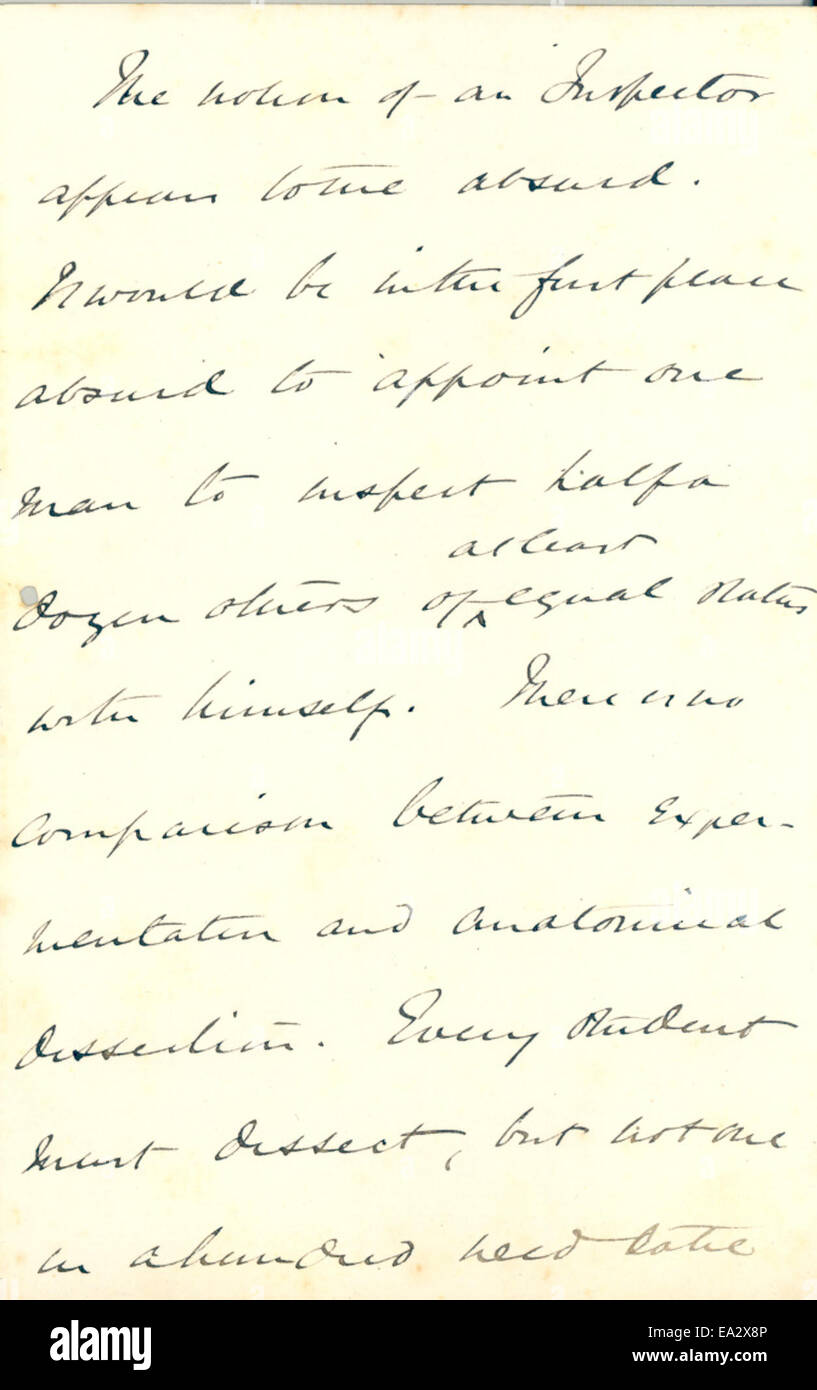 The notion of an Inspector
appears to me absurd.
It would be in the first place
absurd to appoint one
man to inspect half a
at least
dozen others of ^ equal status
with himself. There is no
comparison between exper-
mentation and anatomical
dissection. Every student
must dissect, but not one
in a hundred need
alamy
EA2X8P
www.alamy.com